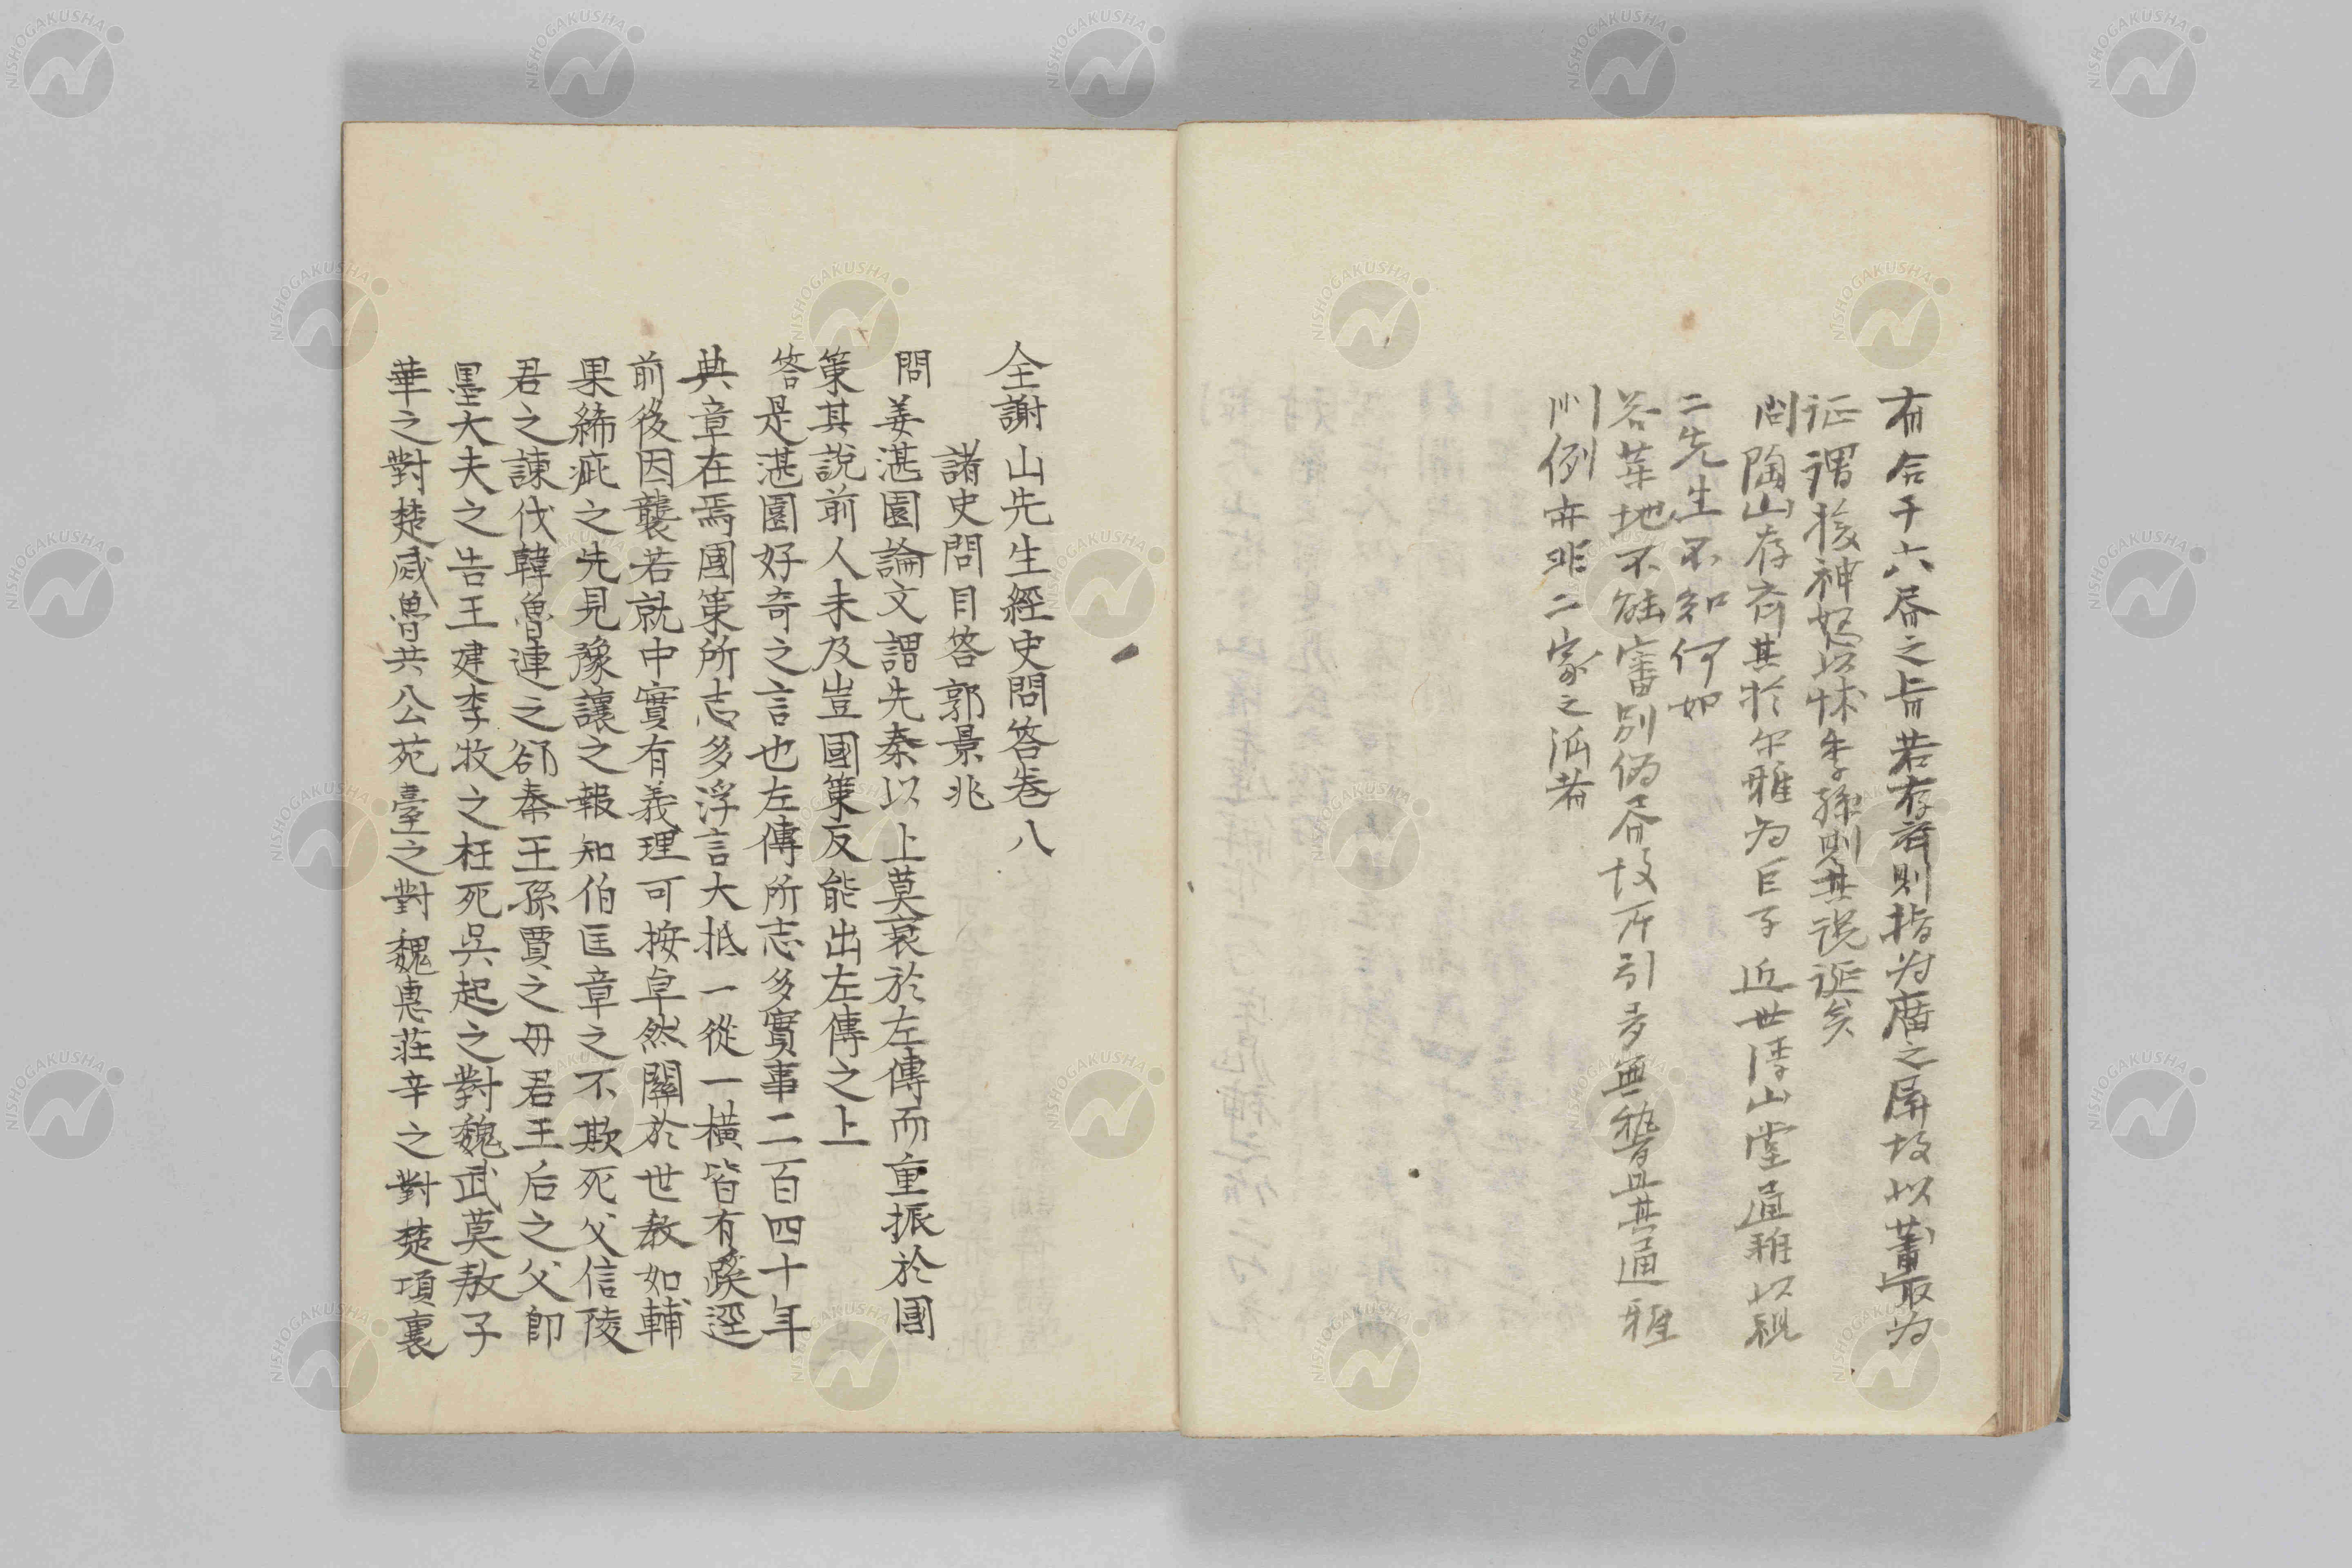 有合于六居之旨若存齋則指为廣之屏故以蕭最为
证謂接神怒以怵朱孫則其说诞矣
問陶山存齊其於尔雅为巨子近世浮山堂通雅以親
二先生不知何如
答草地不能審別偽居故所引多無暬且其通雅
川例亦非二家之派者
全謝山先生經史問答巻八
諸史問目答郭景兆
問姜湛園論文謂先秦以上莫衰於左傳而重振於國
策其說前人未及豈國策反能出左傳之上
答是湛園好奇之言也左傳所志多實事二百四十年
典章在焉國策所志多浮言大抵一從一橫皆有蹊逕
前後因襲若就中實有義理可按卓然關於世教如輔
果絺疵之先見豫讓之報知伯匡章之不欺死父信陵
君之諫伐韓魯連之郤秦王孫賈之母君王后之父即
墨大夫之告王建李牧之枉死吳起之對魏武莫敖子
華之對楚威魯共公苑臺之對魏惠莊辛之對楚項襄
NISHOGAKUSHA